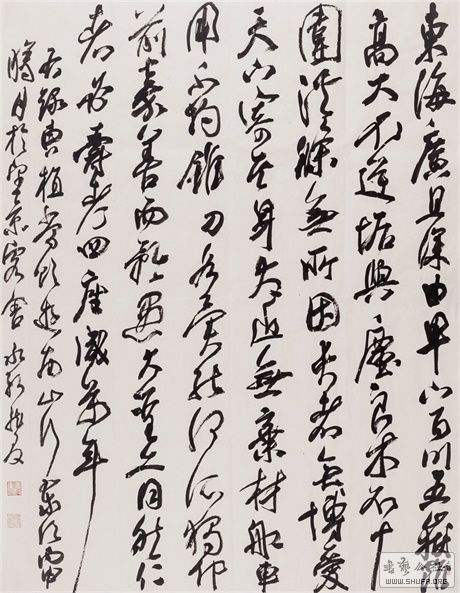 東海廣且深由卑下百川五嶽雖
高大不逆垢與塵良木不十
圍洪條無所因長者能博愛
天下寄其身大匠無棄材船車
用不均錐刀各異能何所獨却
前嘉善而矜愚大聖亦同然仁
者必壽考四座咸萬年
右錄曹植當欲遊南山行 歲次丙申
臘月於望京客舍
书艺公社
WWW.SHUFA.ORG